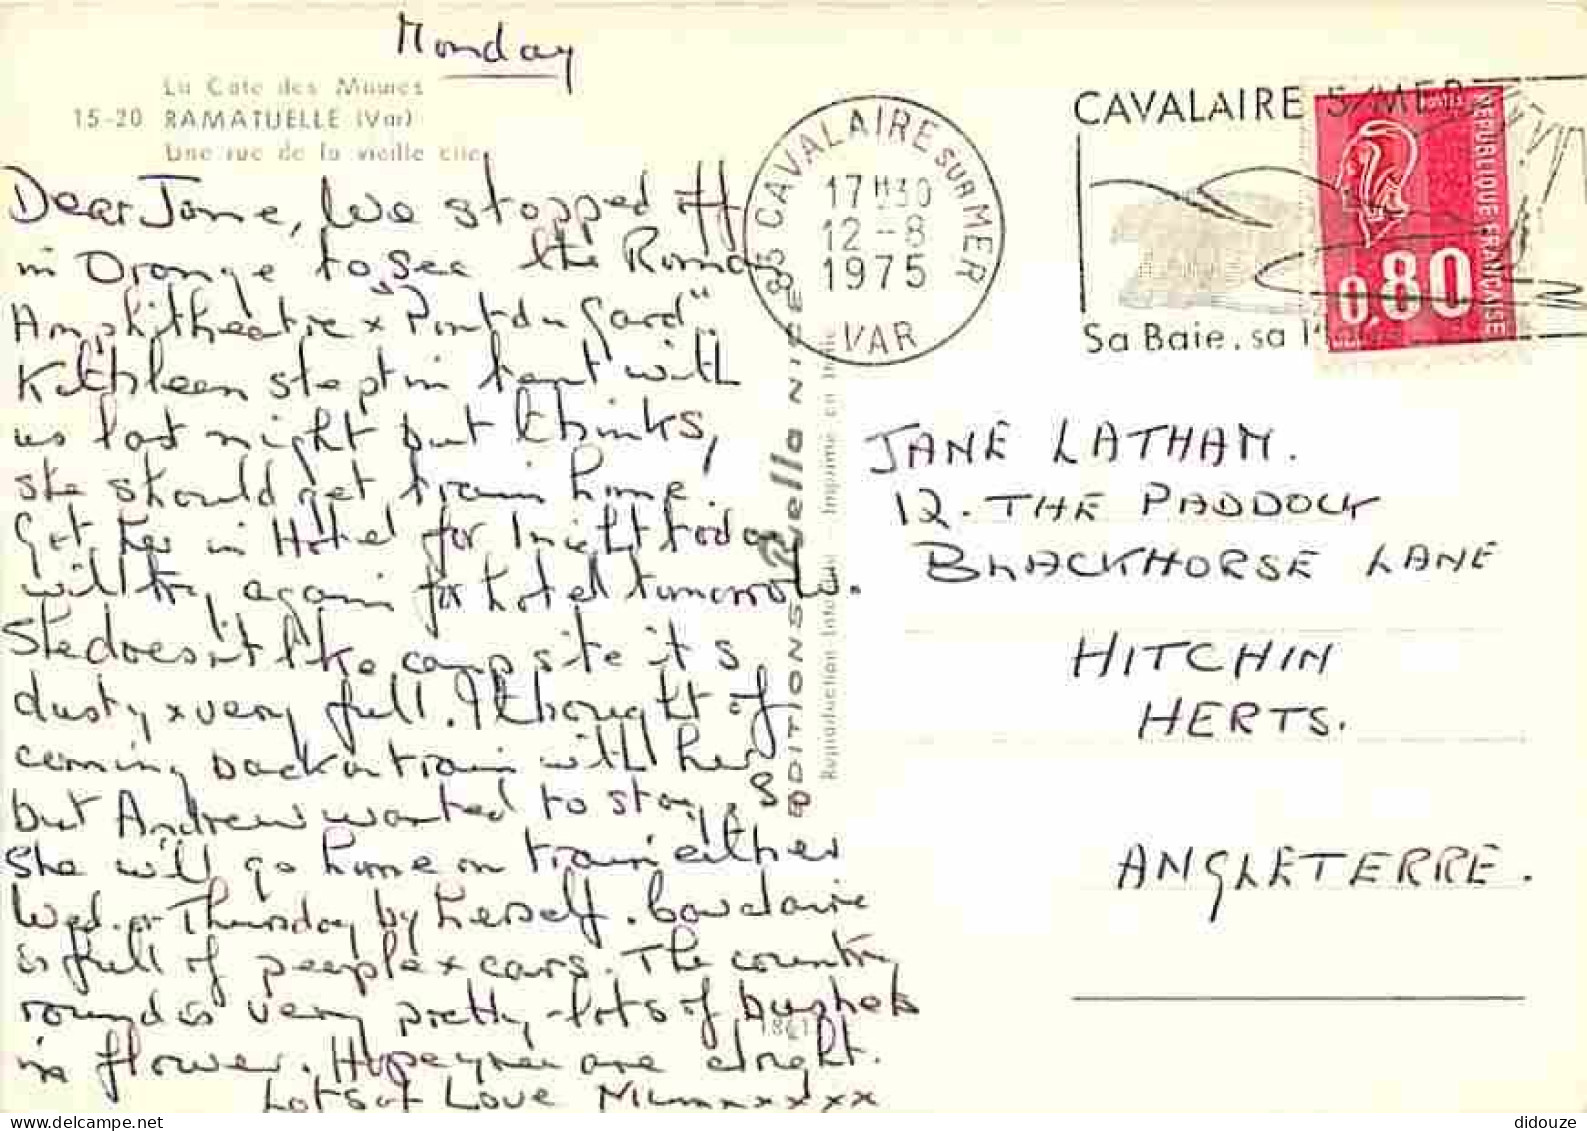 Monday
La Côte des Maures
15-20 RAMATUELLE (Var)
Une rue de la vieille cité
Dear Jane, We stopped off
in Orange to see the Roman
Amphitheatre x "Pont du Gard".
Kathleen slept in tent with
us last night but thinks,
she should get train home.
Got her in Hotel for 1 night today
will try again for hotel tomorrow.
She doesn't like camp site it s
dusty x very full. I thought of
coming back on train with her
but Andrew wanted to stay. So
she will go home on train either
Wed. or Thursday by herself. Cavalaire
is full of people x cars. The country
round is very pretty - lots of bushes
in flower. Hope you are alright.
Lots of Love Mum xxxxxx
EDITIONS Ruella NICE
Reproduction Imprimé en
1861
83 CAVALAIRE SUR MER
17H30
12-8
1975
VAR
CAVALAIRE S/MER
Sa Baie, sa
POSTES
REPUBLIQUE FRANÇAISE
0,80
JANE LATHAM.
12. THE PADDOCK
BLACKHORSE LANE
HITCHIN
HERTS.
ANGLETERRE.
didouze